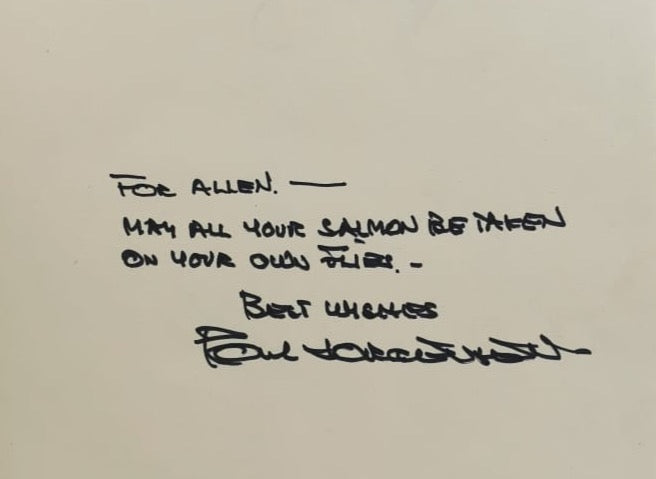 FOR ALLEN. —
MAY ALL YOUR SALMON BE TAKEN
ON YOUR OWN FLIES. -
BEST WISHES
Poul Jorgensen